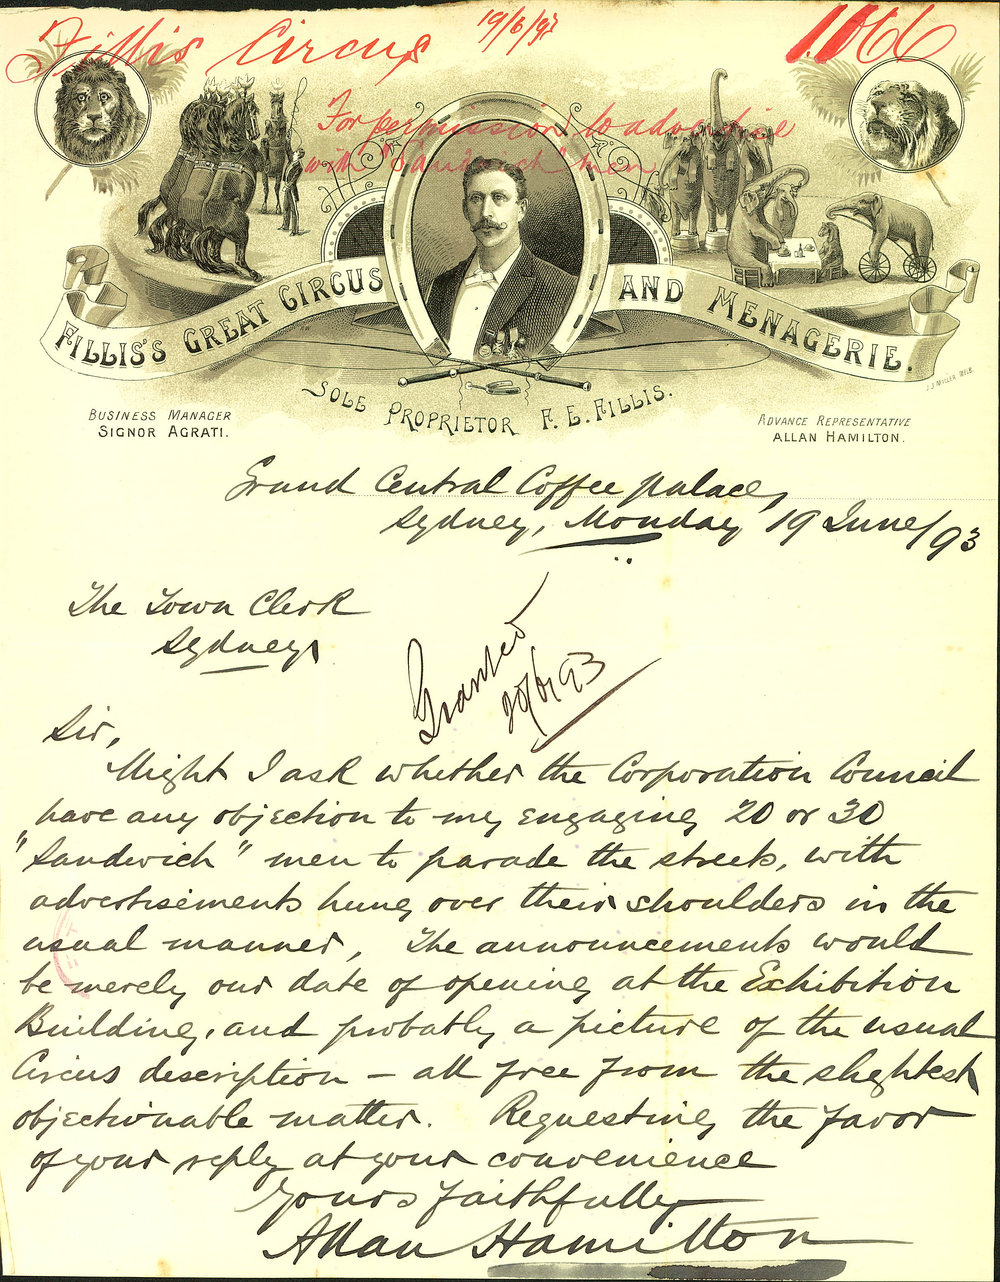 Fillis Circus
19/6/93
1066
For permission to advertise
with "Sandwich" men
FILLIS'S GREAT CIRCUS AND MENAGERIE.
SOLE PROPRIETOR F. E. FILLIS.
BUSINESS MANAGER
SIGNOR AGRATI.
ADVANCE REPRESENTATIVE
ALLAN HAMILTON.
Grand Central Coffee palace,
Sydney, Monday 19 June/93
The Town Clerk
Sydney,
Granted
20/6/93
Sir,
Might I ask whether the Corporation Council
have any objection to my engaging 20 or 30
"Sandwich" men to parade the streets, with
advertisements hung over their shoulders in the
usual manner, The announcements would
be merely our date of opening at the Exhibition
Building, and probably a picture of the usual
Circus description – all free from the slightest
objectionable matter. Requesting the favor
of your reply at your convenience
Yours faithfully
Allan Hamilton